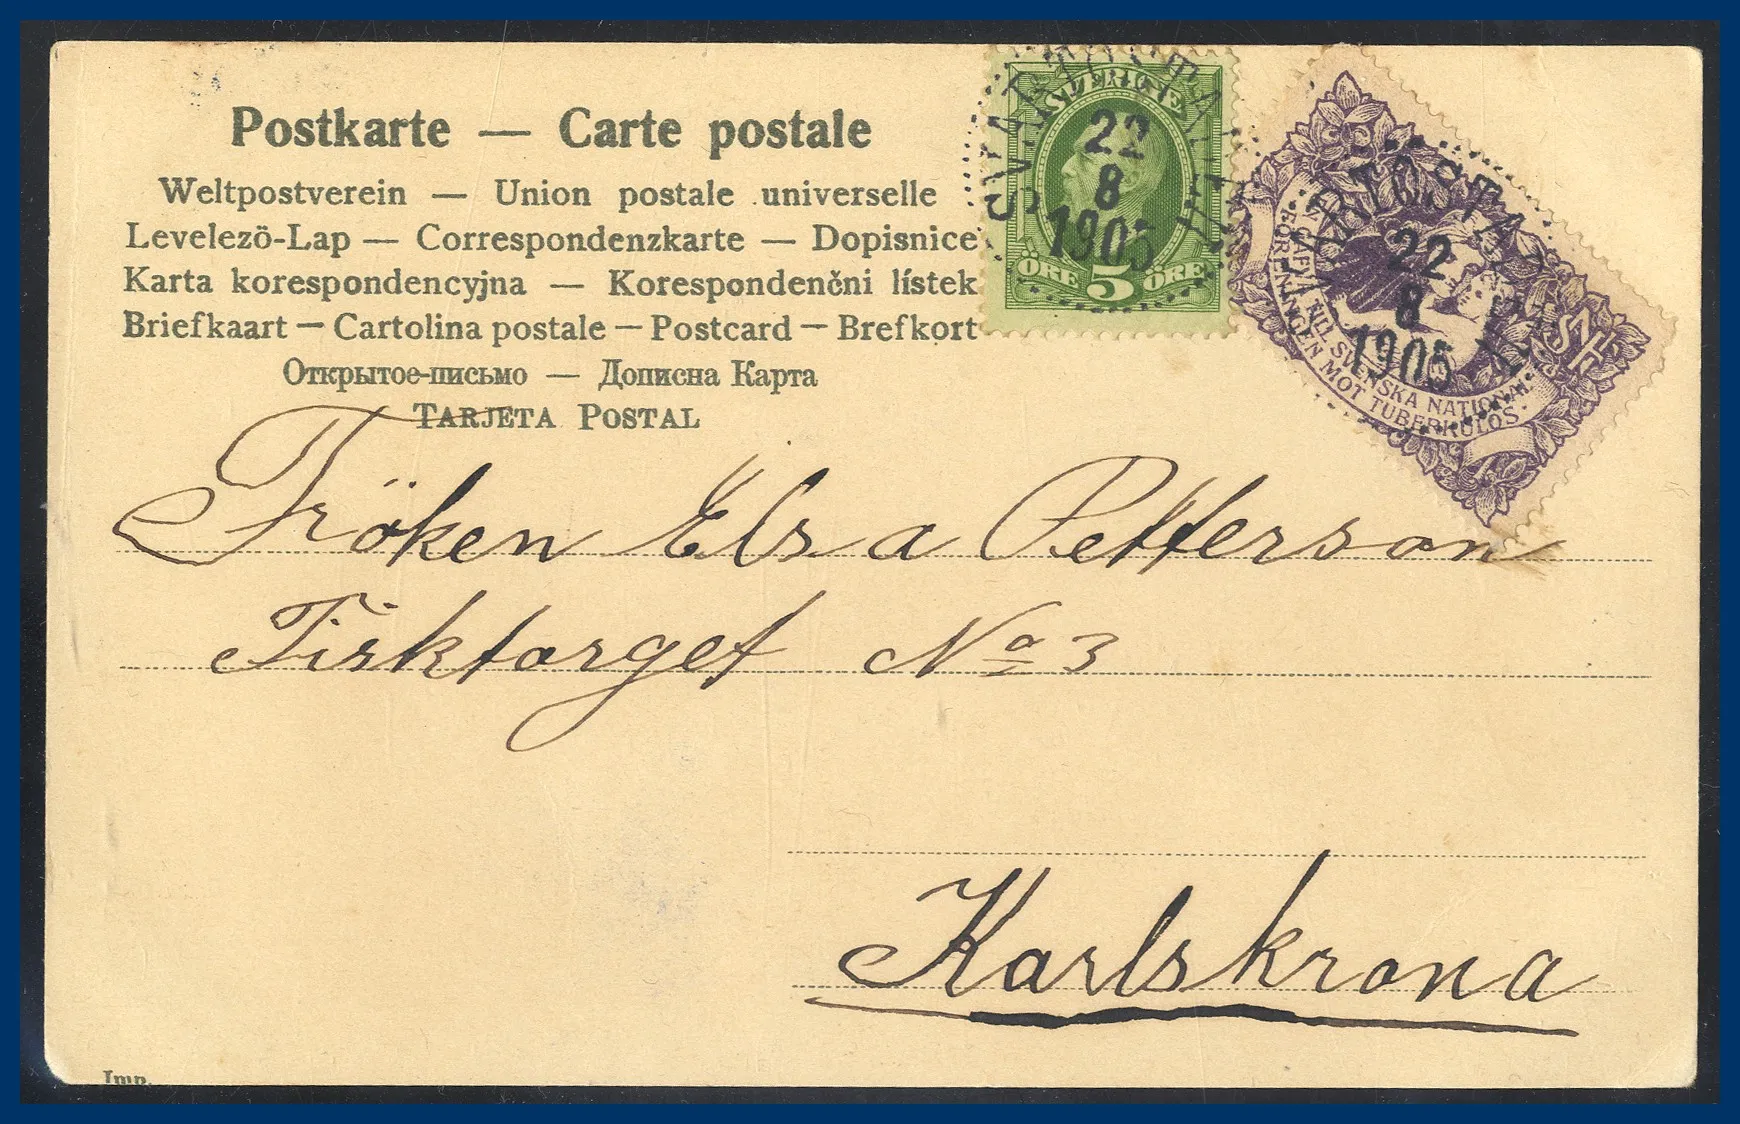 Postkarte — Carte postale
Weltpostverein — Union postale universelle
Levelező-Lap — Correspondenzkarte — Dopisnice
Karta korespondencyjna — Korespondenčni lístek
Briefkaart — Cartolina postale — Postcard — Brefkort
Открытое-письмо — Дописна Карта
TARJETA POSTAL
SVERIGE
22
8
1905
ÖRE 5 ÖRE
22
8
1905
TILL SVENSKA NATIONAL-
FÖRENINGEN MOT TUBERKULOS.
Fröken Elsa Petterson
Fisktorget No 3
Karlskrona
Imp.